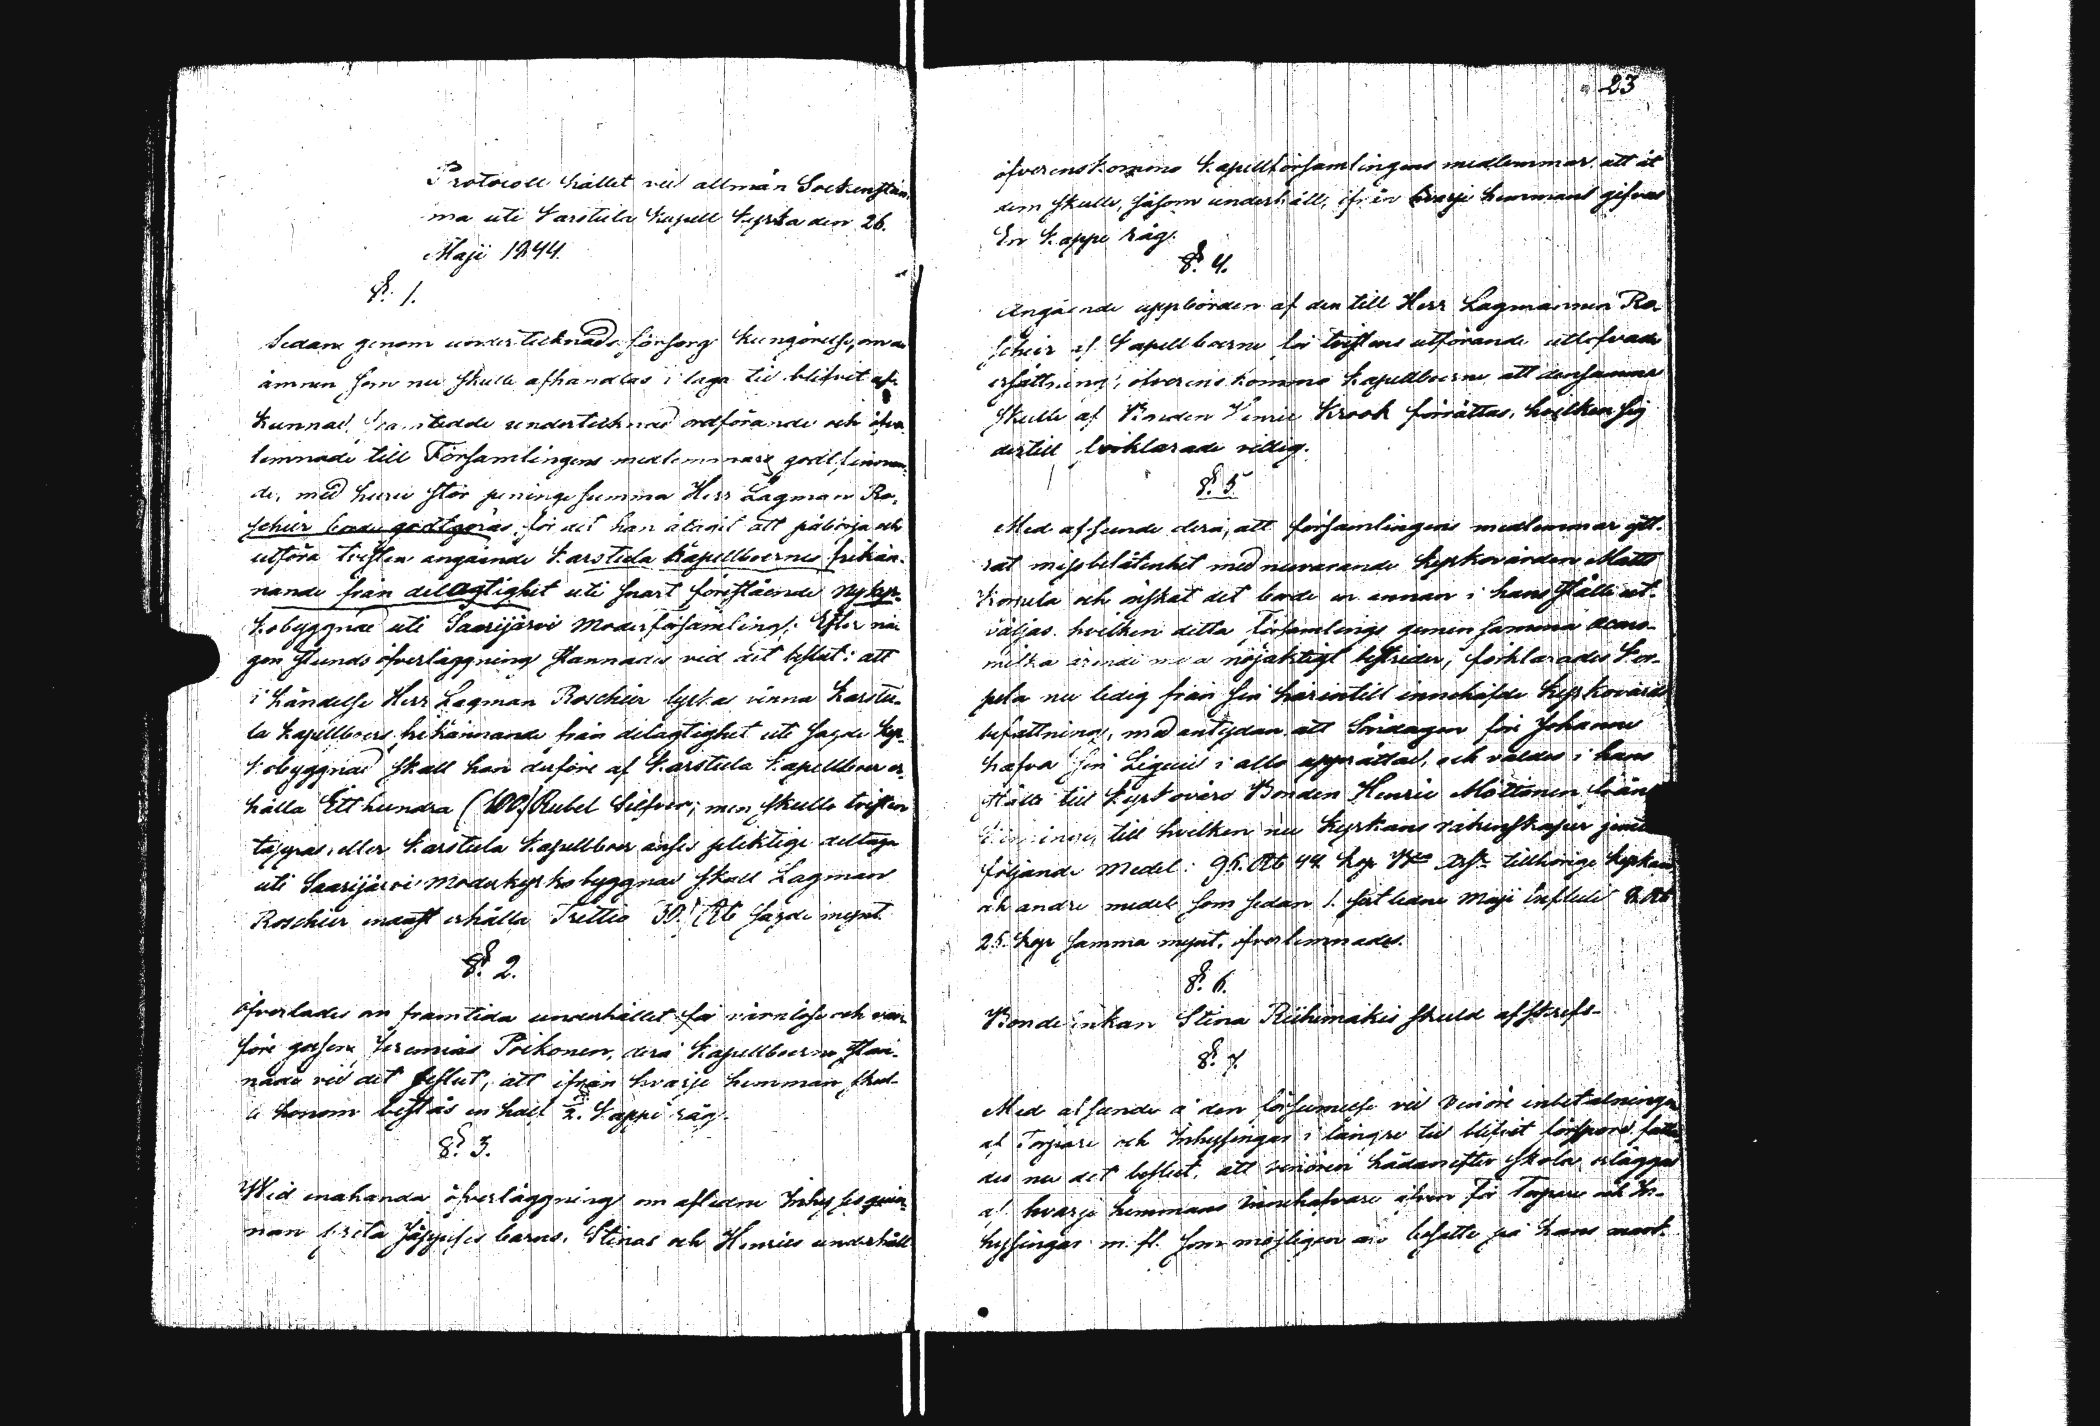 Protocoll hållet vid allmän Sockenstäm,
ma uti Karstula Kapell Kyrka den 26.
Maji 1844.
§. 1.
Sedan genom undertecknads försorg kungörelse, om de
ämnen som nu skulle afhandlas i laga tid blifvit af-
kunnad, framstedde undertecknad ordförande och öfver
lemnade till Församlingens medlemmars godtfinnan-
de, med huru stor peninge summa Herr Lagman Ro-
schier borde godtgöras, för det han åtagit att påbörja och
utföra tvisten angående Karstula Kapellboernes frikän-
nande från delagtighet uti snart förestående ny kyr-
kobyggnad uti Saarijärvi Moderförsamling. Efter nå-
gon stunds öfverläggning stannades vid det beslut: att
i händelse Herr Lagman Roschier lyckas vinna Karstu-
la Kapellboers frikännande från delagtighet uti sagde kyr-
kobyggnad skall han derföre af Karstula Kapellboer er-
hålla Ett hundra (100) Rubel Silfver; men skulle tvisten
tappas, eller Karstula Kapellboer anses pliktige deltaga
uti Saarijärvi Moderkyrko byggnad skall Lagman
Roschier endast erhålla Trettio 30. Rb sagde mynt.
§. 2.
Öfverlades om framtida underhållet för värnlöse och van-
före gossen Jeremias Poikonen, derå Kapellboerne stan-
nade vid det beslut, att ifrån hvarje hemman skul-
le honom bestås en half ½. Kappe råg.
§. 3.
Wid enahanda öfverläggning om aflidne Inhyses qvin-
nan Greta Jäppises barns, Stinas och Henrics underhåll
23
öfverenskommo Kapellförsamlingens medlemmar, att åt
dem skulle, såsom underhåll, ifrån hvarje hemmant gifvas
En Kappe råg.
§. 4.
Angående uppbörden af den till Herr Lagmannen Ro-
schier af Kapellboerne för tvistens utförande utlofvade
ersättning, öfverenskommo Kapellboerne att densamma
skulle af Bonden Henric Krook förrättas, hvilken sig
dertill förklarade villig.
§. 5.
Med afseende derå, att församlingens medlemmar ytt-
rat missbelåtenhet med nuvarande Kyrkovärden Matts
Korpela och önskat det borde en annan i hans ställe ut-
väljas. hvilken detta Församlings gemensamma
nöjaktigt bestrider, förklarades Kor-
pela nu ledig från sin härintill innehafde Kyrkovärds
befattning, med antydan att Söndagen före Johanne
hafva sin Liqvid i allo upprättad, och valdes i hans
ställe till Kyrkovärd Bonden Henric Möttönen från
till hvilken nu Kyrkans räkenskaper jemte
följande Medel: 95. Rb 44 kop tillhörige Kyrkan
och andre medel som sedan 1. sistledne Maji influtit 8. Rb
25. kop samma mynt, öfverlemnades.
§. 6.
Bondeenkan Stina Riihimäkis skuld afskrefs.
§. 7.
Med afseende å den försummelse vid inbetalningen
af Torpare och Inhysingar i längre tid blifvit försport fatta-
des nu det beslut, att hädanefter skola erlägga
af hvarje hemmans innehafvare äfven för Torpare och In-
hysingar m. fl. som möjligen äro bosatte på hans mark.